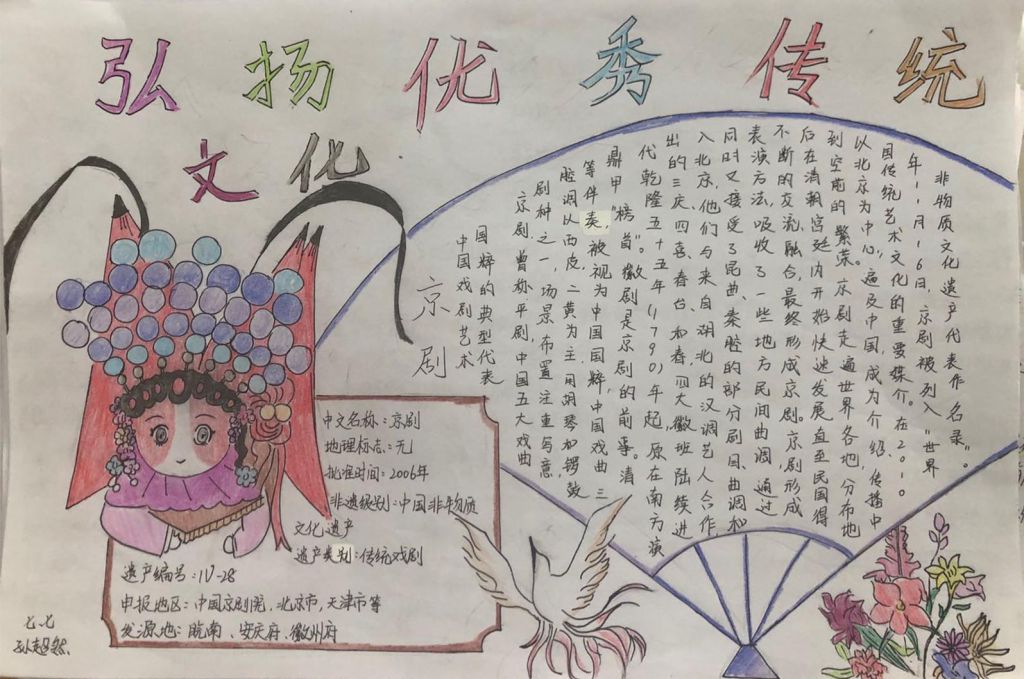 弘扬优秀传统
文化
京剧
中国戏剧艺术
国粹的典型代表
京剧,曾称平剧,中国五大戏曲
剧种之一,场景布置注重写意
腔调以西皮、二黄为主,用胡琴和锣鼓
等伴奏,被视为中国国粹,中国戏曲三
鼎甲"榜首"。徽剧是京剧的前身。清
代乾隆五十五年(1790)年起,原在南方演
出的三庆、四喜、春台、和春,四大徽班陆续进
入北京,他们与来自湖北的汉调艺人合作
同时又接受了昆曲、秦腔的部分剧目、曲调和
表演方法,吸收了一些地方民间曲调,通过
不断的交流,融合,最终形成京剧。京剧形成
后在清朝宫廷内开始快速发展,直至民国得
到空前的繁荣。京剧走遍世界各地,分布地
以北京为中心,遍及中国,成为介绍、传播中
国传统艺术文化的重要媒介。在2010
年11月16日,京剧被列入"世界
非物质文化遗产代表作名录"。
中文名称:京剧
地理标志:无
批准时间:2006年
非遗级别:中国非物质
文化遗产
遗产类别:传统戏剧
遗产编号:IV-28
申报地区:中国京剧院、北京市、天津市等
发源地:皖南、安庆府、徽州府
七.七
孙超然